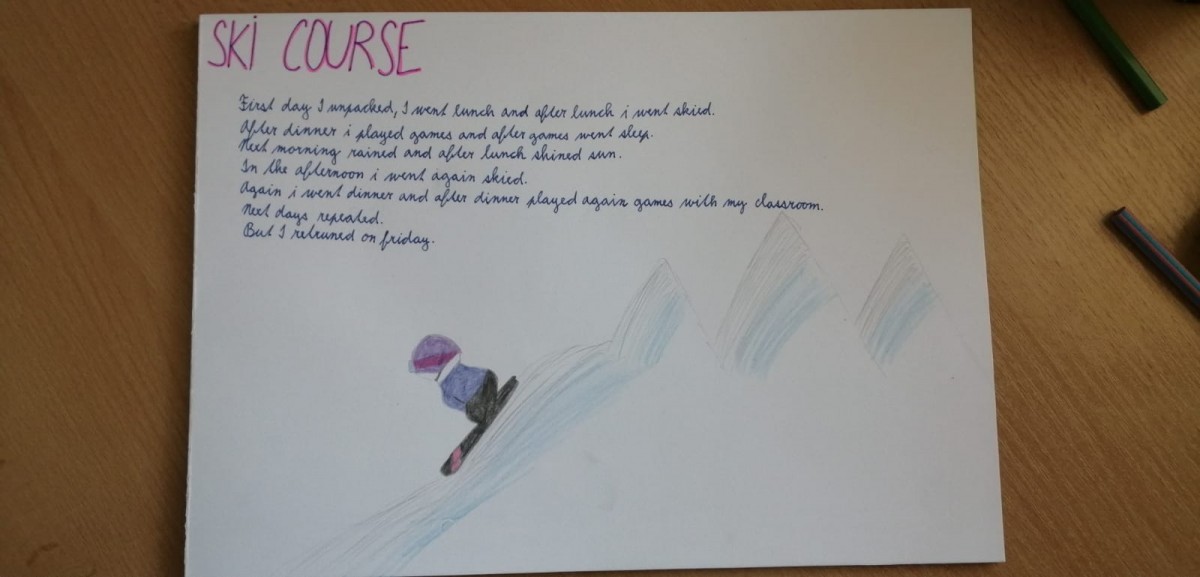 SKI COURSE
First day I unpacked, I went lunch and after lunch i went skied.
After dinner i played games and after games went sleep.
Next morning rained and after lunch shined sun.
In the afternoon i went again skied.
Again i went dinner and after dinner played again games with my classroom.
Next days repeated.
But I retruned on friday.